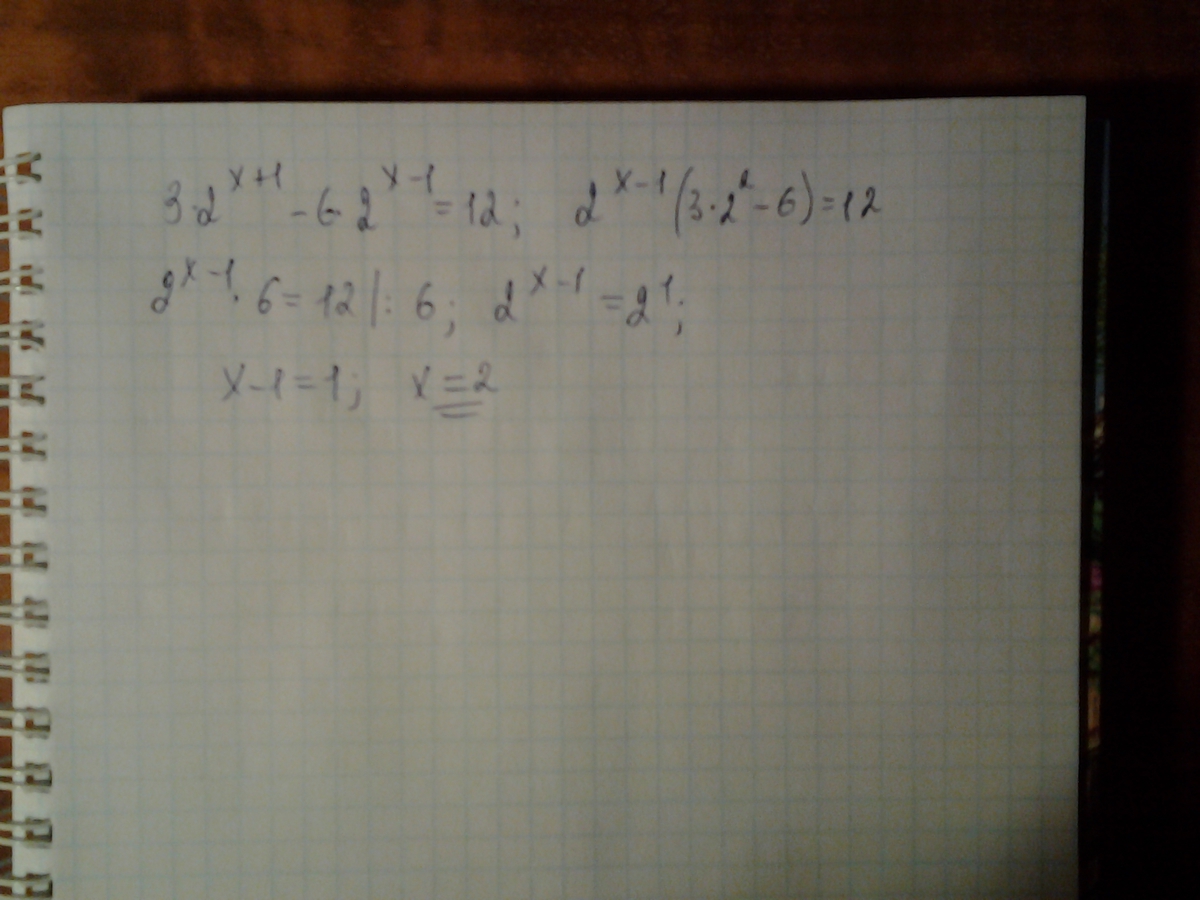 3·2^{x+1} - 6·2^{x-1} = 12; 2^{x-1}(3·2^2 - 6) = 12
2^{x-1} · 6 = 12 |: 6; 2^{x-1} = 2^1;
x - 1 = 1; x = 2